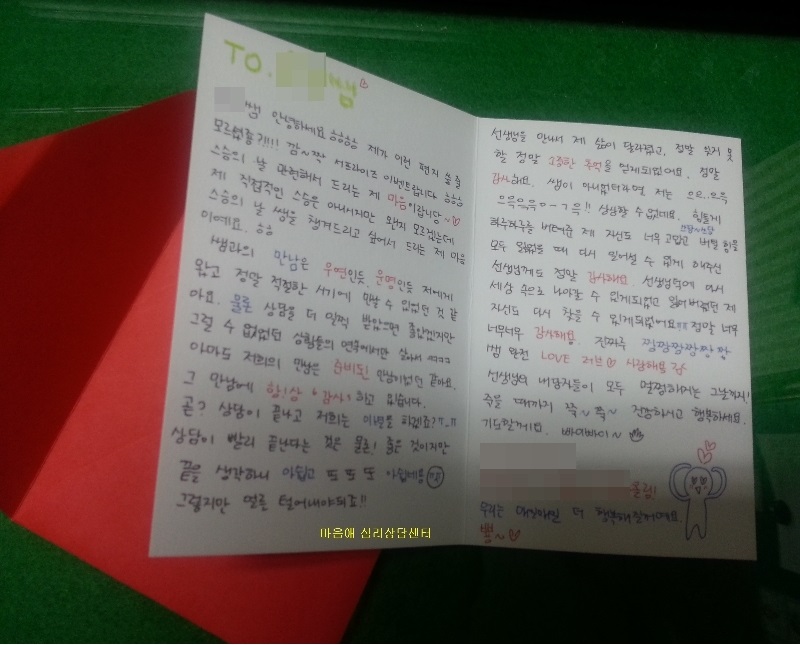 TO. 쌤
쌤 안녕하세요 ㅎㅎㅎㅎ 제가 이런 편지 쓸줄
모르셨죠?!!! 깜~짝 서프라이즈 이벤트랍니다 ㅎㅎㅎ
스승의 날 관련해서 드리는 제 마음이랍니다~♡
제 직접적인 스승은 아니시지만 왠지 모르겠는데
스승의 날 쌤을 챙겨드리고 싶어서 드리는 제 마음
이에요. ㅎㅎ
쌤과의 만남은 우연인듯, 운명인듯 저에게
왔고 정말 적절한 시기에 만날 수 있었던 것 같
아요. 물론 상담을 더 일찍 받았으면 좋았겠지만
그럴 수 없었던 상황들의 연속에서만 살아서 ㅋㅋㅋ
아마도 저희의 만남은 준비된 만남이었던 같아요.
그 만남에 항!상 '감사'하고 있습니다.
곧? 상담이 끝나고 저희는 이별을 하겠죠??..ㅠ
상담이 빨리 끝난다는 것은 물론! 좋은 것이지만
끝을 생각하니 아쉽고 또 또 또 아쉽네용
그렇지만 얼른 털어내야되죠!!
선생님을 만나서 제 삶이 달라졌고, 정말 잊지 못
할 정말 소중한 추억을 얻게되었어요. 정말
감사해요. 쌤이 아니었더라면 저는 으으..으윽
으윽으윽ㅇㅡㄱ윽!! 상상할 수 없네요. 힘들게
하루하루를 버텨준 제 자신도 너무 고맙고 버틸 힘을
모두 잃었을 때 다시 일어설 수 있게 해주신
선생님께도 정말 감사해요. 선생님덕에 다시
세상 속으로 나아갈 수 있게되었고 잃어버렸던 제
자신도 다시 찾을 수 있게되었어요!! 정말 너무
너무너무 감사해용. 진짜루 짱짱짱짱짱짱
쌤 완전 LOVE 러브♡ 사랑해요
선생님의 내담자들이 모두 멀쩡해지는 그날까지!
죽을 때까지 쭉~ 쭉~ 건강하시고 행복하세요.
기도할게요. 빠이빠이~
올림!
우리는 더 행복해질거예요.
뿅~♡
마음애 심리상담센터